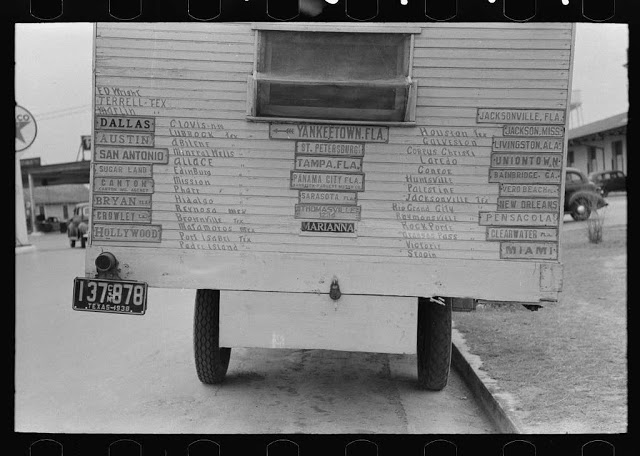 CO
ED Wright
TERRELL-TEX
DALLAS
AUSTIN
SAN ANTONIO
SUGAR LAND
CANTON
BRYAN
CROWLEY
HOLLYWOOD
Clovis-nm
Lubbock Tex
Abilene
Mineral Wells
Edinburg
Mission
Pharr
Hidalgo
Reynosa mex
Brownville Tex
Matamoros mex
Port Isabel Tex
Padre Island
YANKEETOWN, FLA.
ST. PETERSBURG
TAMPA, FLA.
PANAMA CITY FLA.
SARASOTA, FLA.
THOMASVILLE
MARIANNA
Houston Tex
Galveston
Corpus Christi
Laredo
Conroe
Huntsville
Palestine
Jacksonville Tex
Rio Grand City
Raymonsville
Rock Port
Victoria
JACKSONVILLE, FLA.
JACKSON, MISS.
LIVINGSTON, ALA.
UNIONTOWN
BAINBRIDGE, GA.
VERO BEACH
NEW ORLEANS
PENSACOLA
CLEARWATER
MIAMI
137 878
TEXAS-1938